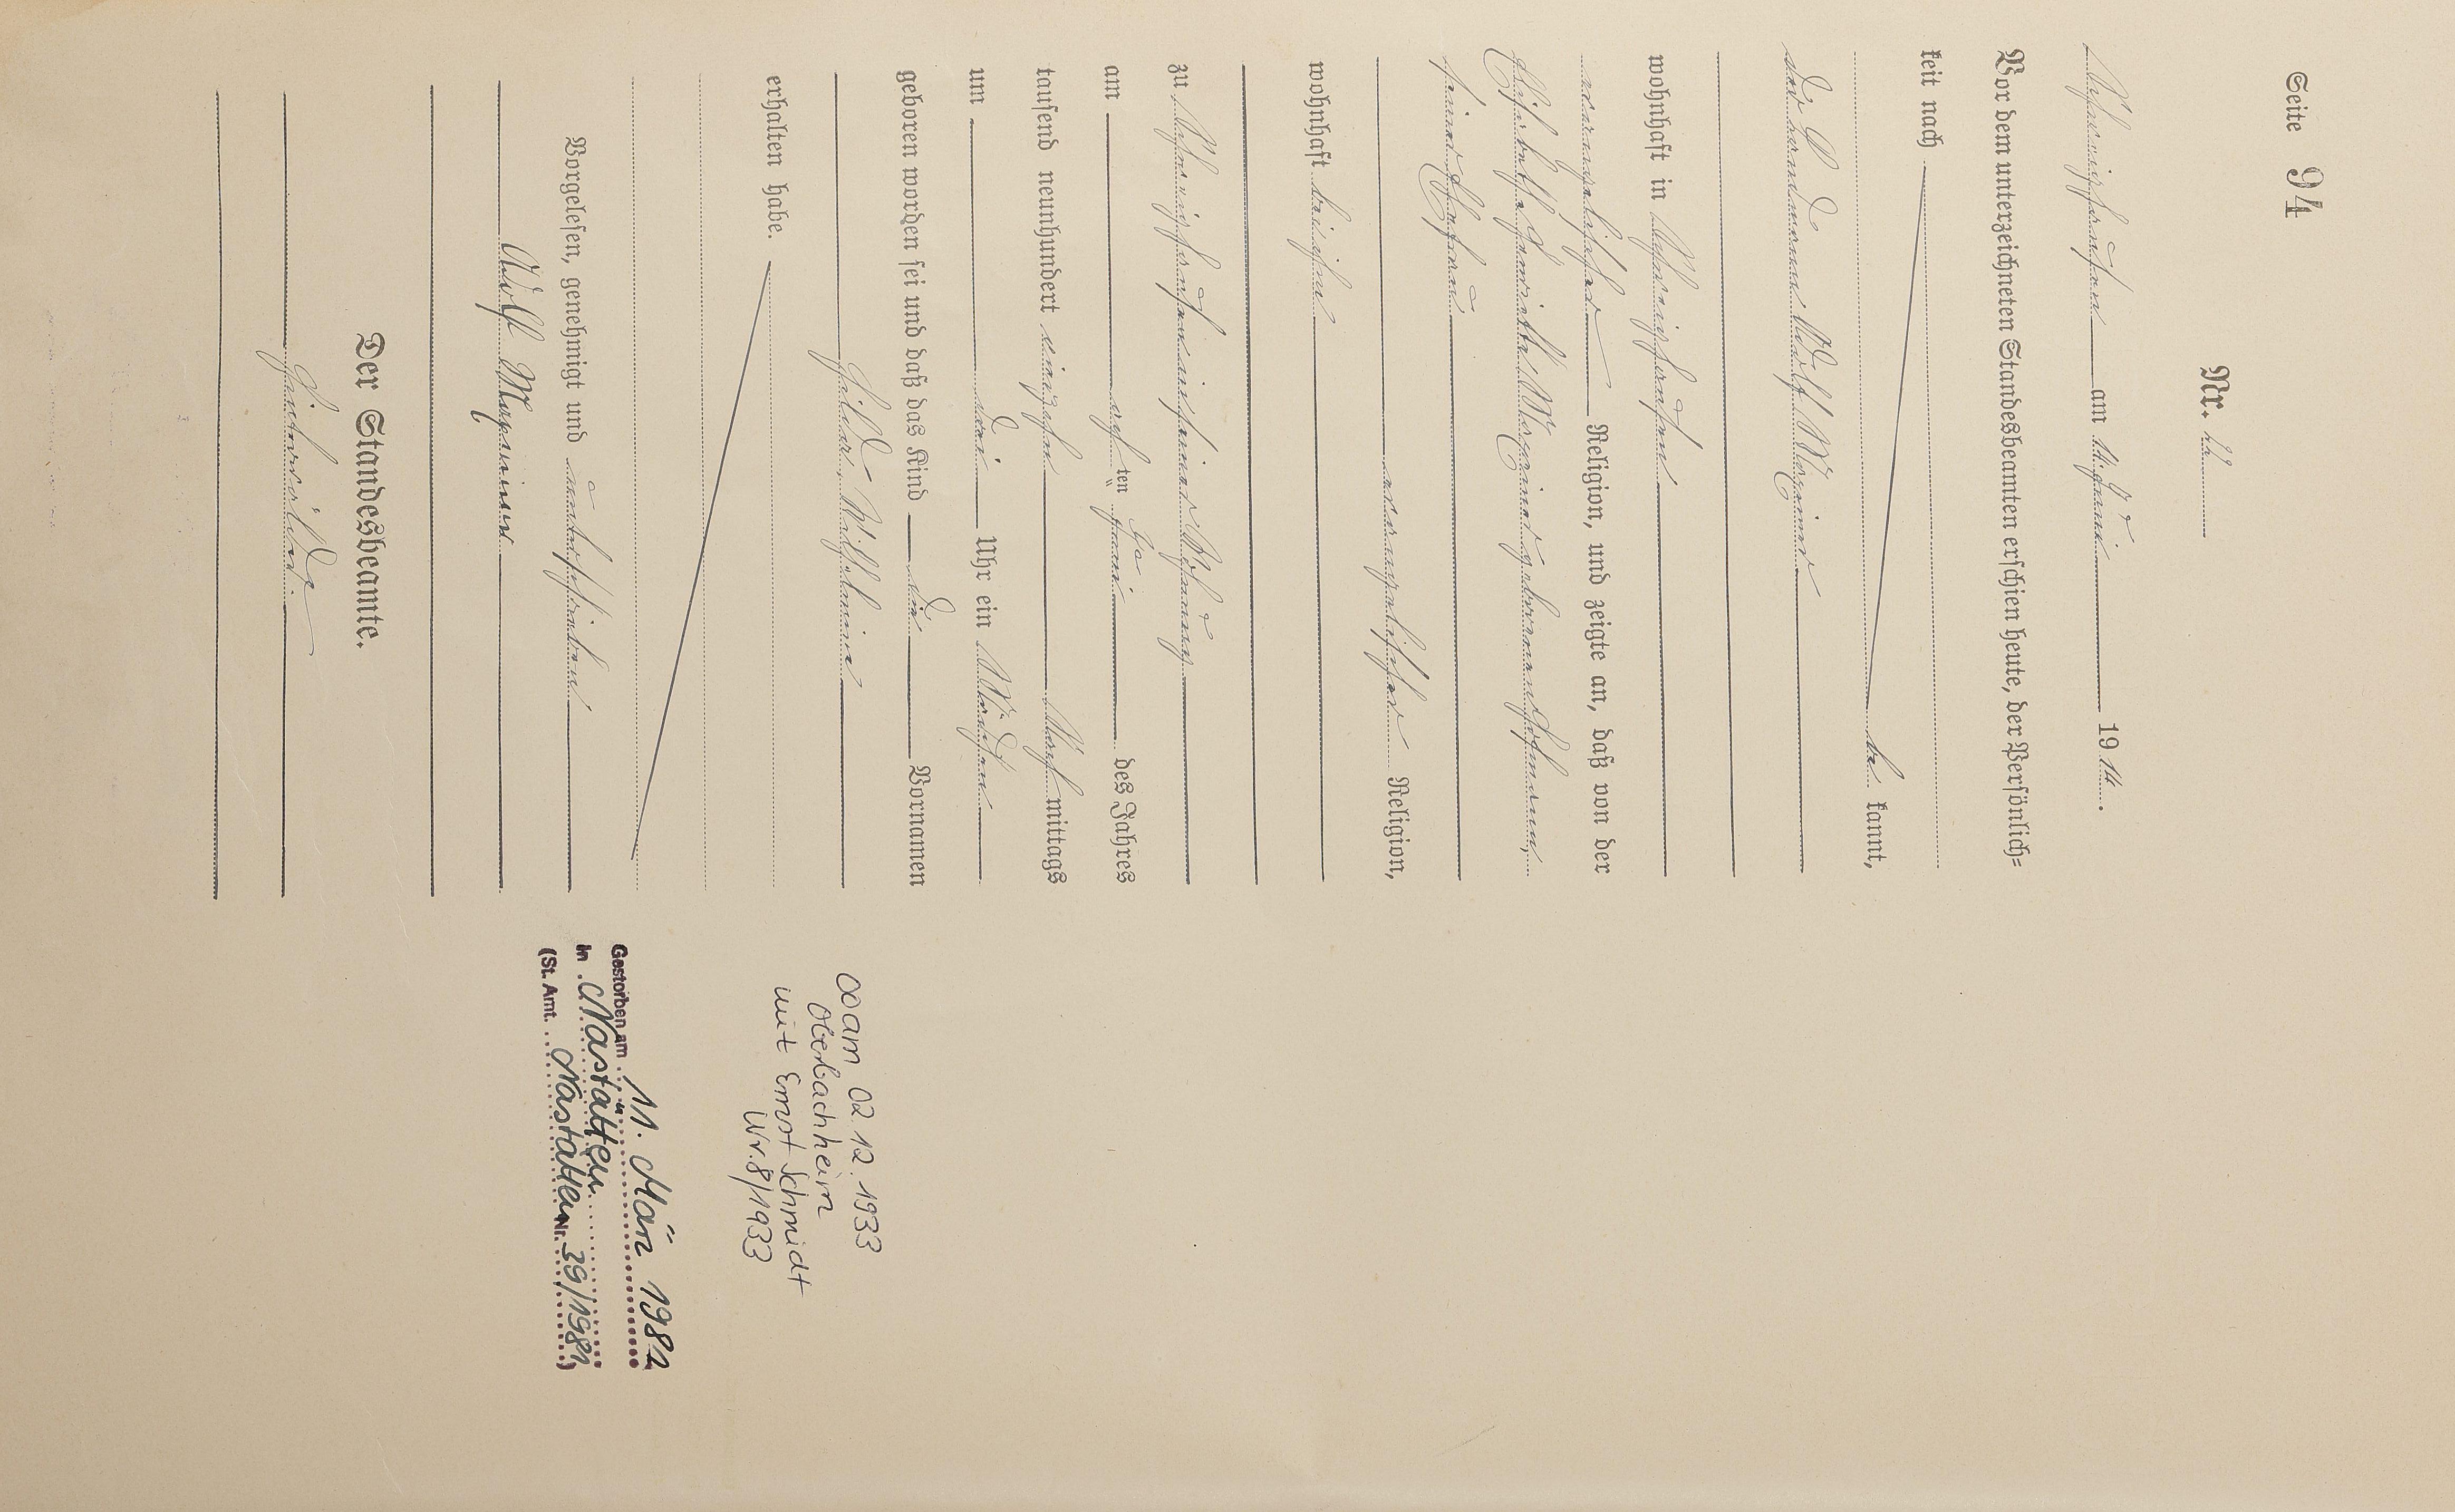 Seite 94
Nr. 22
am 11. Juni 1914.
Vor dem unterzeichneten Standesbeamten erschien heute, der Persönlich=
keit nach
be kannt,
der Adolf Meximer
wohnhaft in
evangelischer Religion, und zeigte an, daß von der
Elisabethe Henriette geborenen Hofmann,
seiner Ehefrau
evangelischer Religion,
wohnhaft bei ihm
zu in seiner Wohnung
am achten Juni des Jahres
tausend neunhundert vierzehn Nachmittags
um drei Uhr ein Mädchen
geboren worden sei und daß das Kind die Vornamen
Hilda, Wilhelmine
erhalten habe.
Vorgelesen, genehmigt und unterschrieben
Adolf
Der Standesbeamte.
Hinterwälder.
∞ am 02.12.1933
Oberbachheim
mit Ernst Schmidt
Nr. 8/1933
Gestorben am 11. März 1981
in Nastätten
(St. Amt. Nastätten Nr. 39/1981)